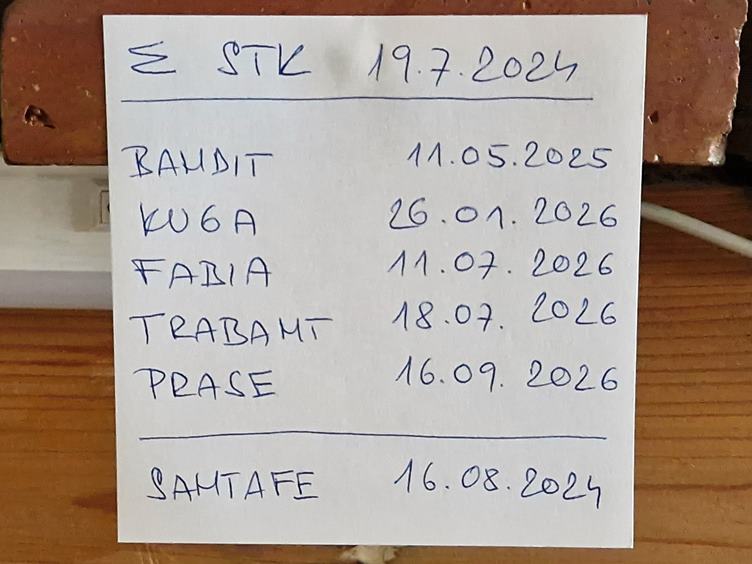 Σ STK 19.7.2024
BANDIT 11.05.2025
KUGA 26.01.2026
FABIA 11.07.2026
TRABANT 18.07.2026
PRASE 16.09.2026
SANTAFE 16.08.2024